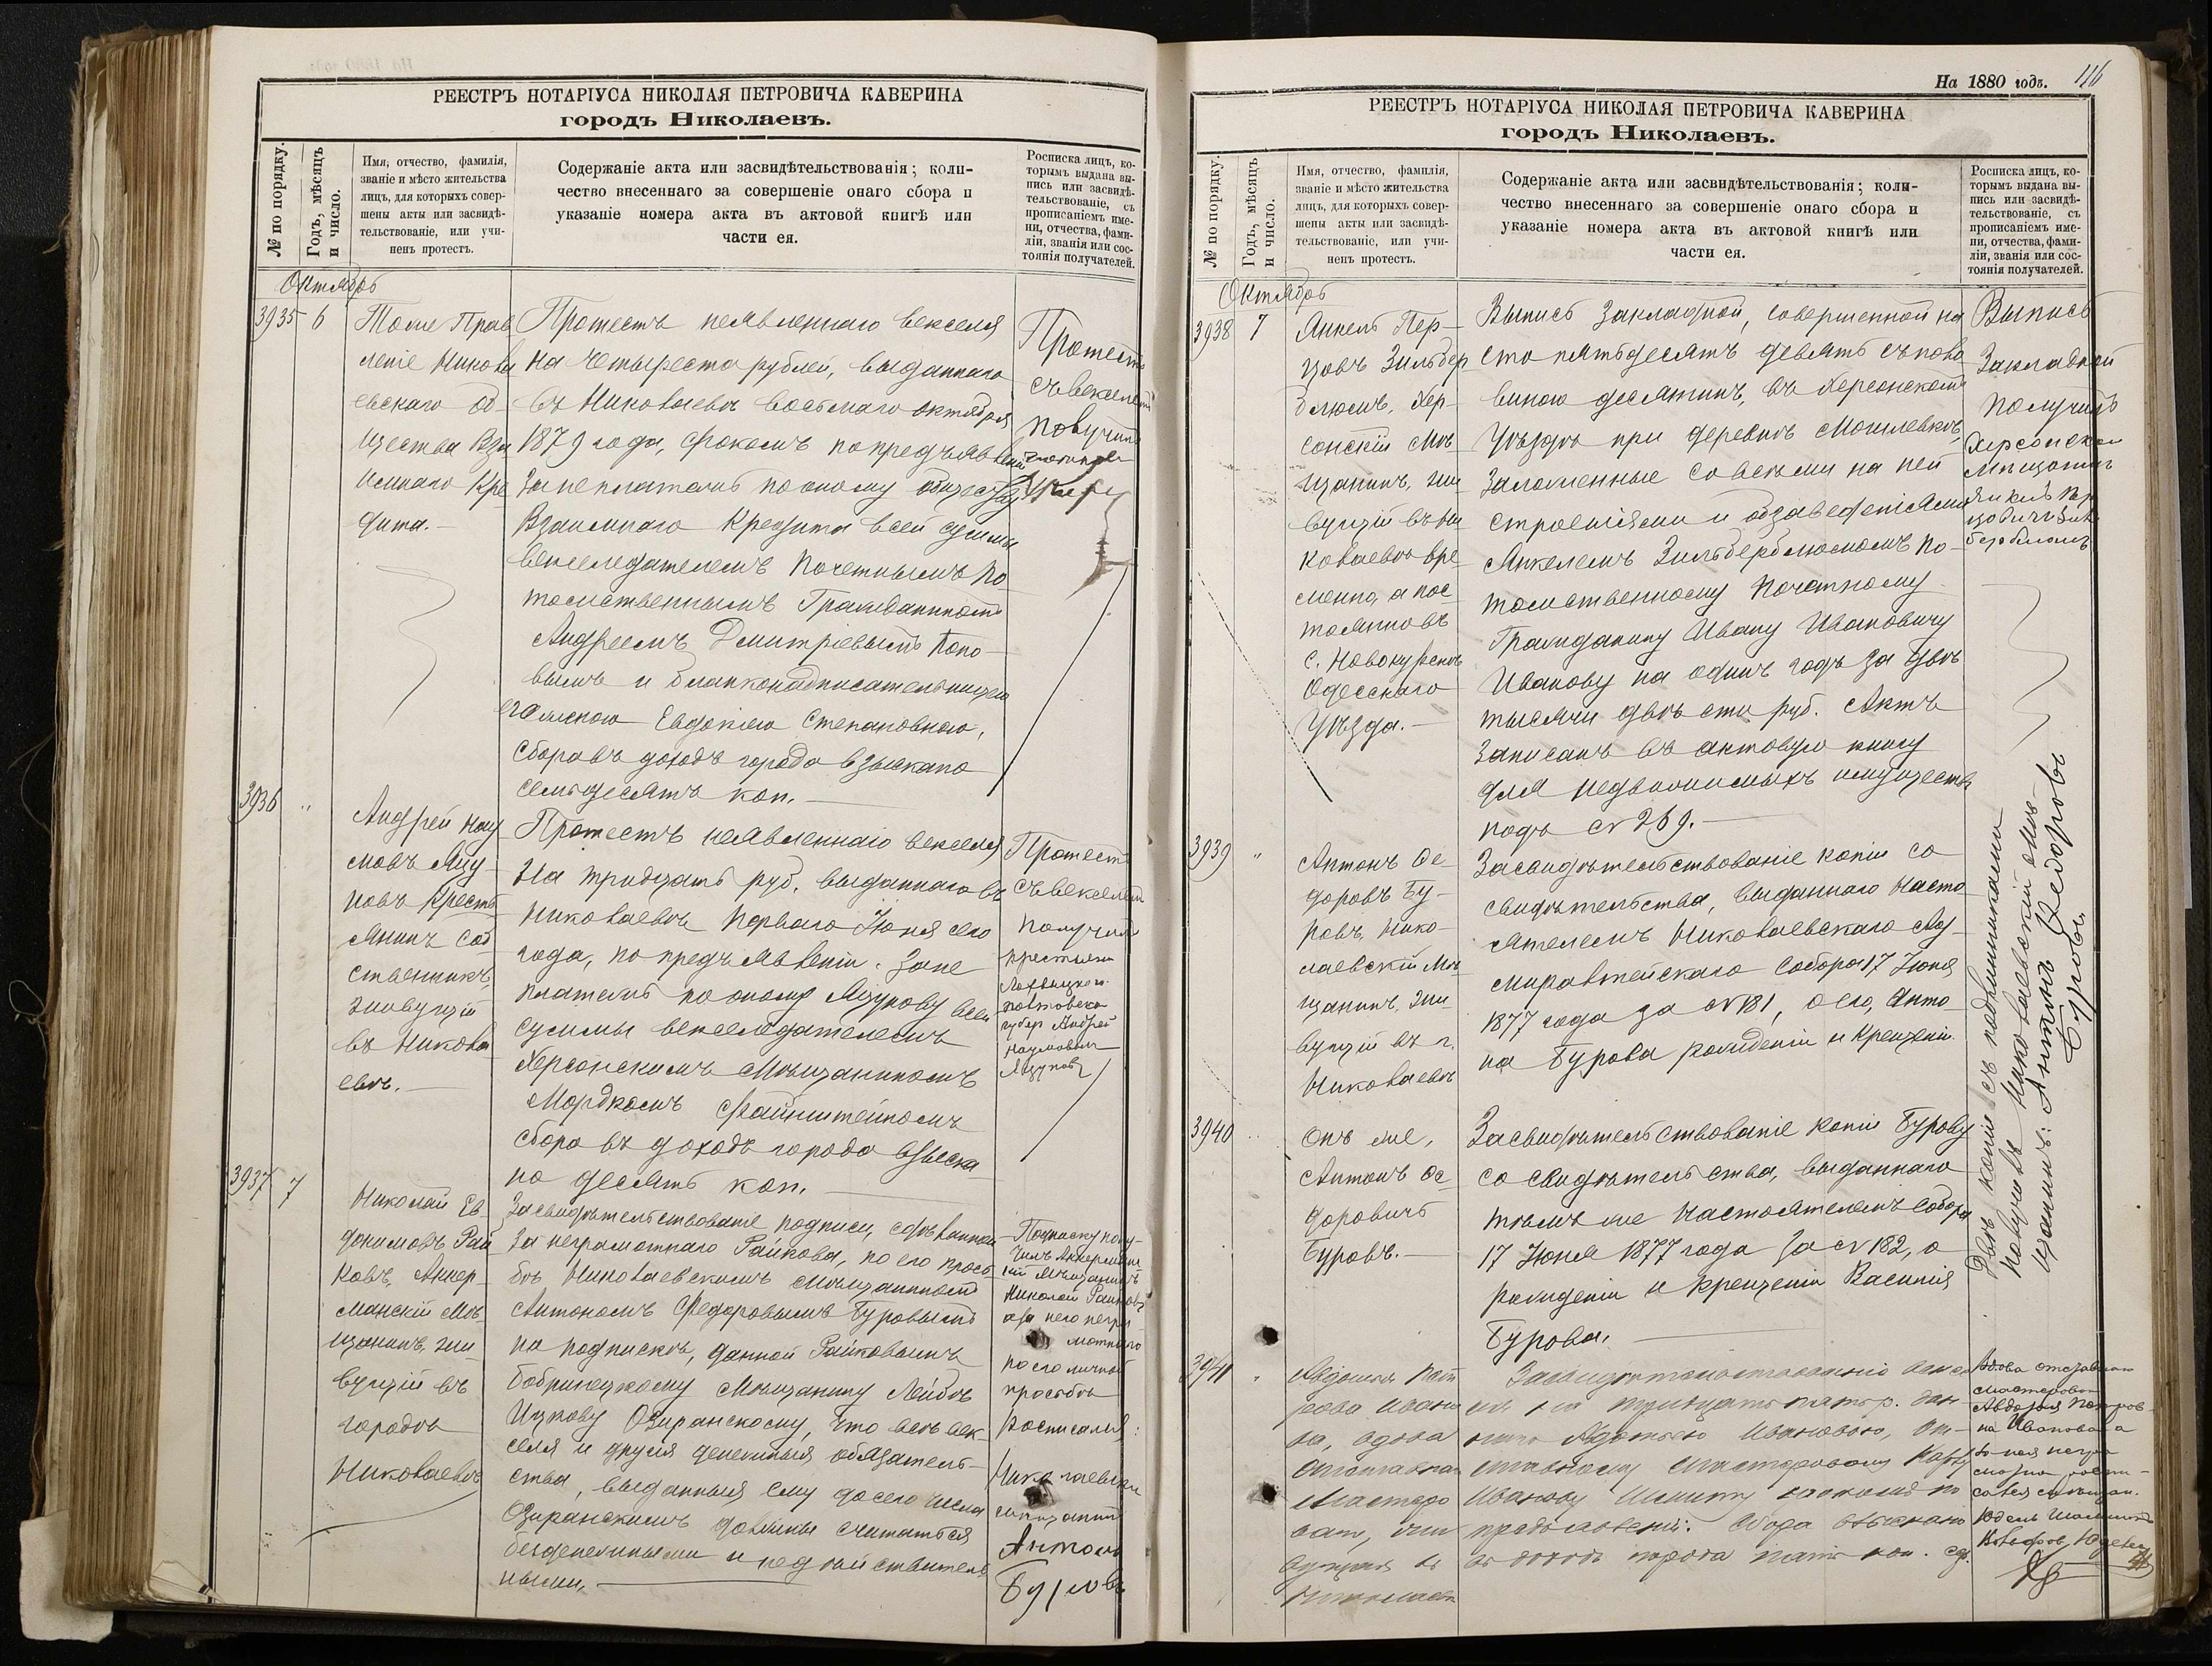 РЕЕСТРЪ НОТАРІУСА НИКОЛАЯ ПЕТРОВИЧА КАВЕРИНА
городъ Николаевъ.
№ по порядку.
Годъ, мѣсяцъ
и число.
Имя, отчество, фамилія,
званіе и мѣсто жительства
лицъ, для которыхъ совер-
шены акты или засвидѣ-
тельствованіе, или учи-
ненъ протестъ.
Содержаніе акта или засвидѣтельствованія; коли-
чество внесеннаго за совершеніе онаго сбора и
указаніе номера акта въ актовой книгѣ или
части ея.
Росписка лицъ, ко-
торымъ выдана вы-
пись или засвидѣ-
тельствованіе, съ
прописаніемъ име-
ни, отчества, фами-
ліи, званія или сос-
тоянія получателей.
Октябрь
3935 6
Тоже Прав
леніе Никола
евскаго Об-
щества Вза
имнаго Кре
дита.-
Протестъ неявленнаго векселя
на четыреста рублей, выданнаго
въ Николаевѣ восьмаго октября
1879 года, срокомъ по предъявленіи
За неплатежъ по оному обществу
Взаимнаго Кредита всей суммы
векселедателемъ Почетнымъ По
томственнымъ Гражданиномъ
Андреемъ Дмитріевымъ Попо-
вымъ и бланконадписательницею
его женою Евдокіею Степановною,
сбора въ доходъ города взыскано
семьдесятъ коп.
Протестъ
съ векселемъ
получилъ
3936 "
Андрей Нау
мовъ Яцу-
новъ Кресть
янинъ Соб
ственникъ
живущій
въ Никола
евѣ.
Протестъ неявленнаго векселя
На тридцать руб. выданнаго въ
Николаевѣ Перваго Іюня сего
года, по предъявленіи. За не
платежъ по оному Яцунову всей
суммы векселедателемъ
Херсонскимъ Мѣщаниномъ
Мордкомъ Файнштейномъ
сбора въ доходъ города взыска
но десять коп.
Протестъ
съ векселемъ
получилъ
крестьян
Полтавско
губер Андрей
Наумовъ
Яцуновъ
3937 7
Николай Ев-
докимовъ Рай
ковъ, Аккер-
манскій Мѣ
щанинъ, жи
вущій въ
городѣ
Николаевѣ
Засвидѣтельствованіе подписи, сдѣланной
За неграмотнаго Райкова, по его прось
бѣ, Николаевскимъ мѣщаниномъ
Антономъ Федоровымъ Буровымъ
на подпискѣ, данной Райковымъ
Бобринецкому Мѣщанину Лейбѣ
Ицкову Озиранскому, что всѣ век-
селя и другія денежныя обязатель-
ства, выданныя ему до сего числа
Озиранскимъ должны считаться
безденежными и недѣйствитель
ными.
Подписку полу-
чилъ Аккерман-
кій Мѣщанинъ
Николай Райковъ
а за него негра
мотнаго
по его личной
просьбѣ
росписался:
Николаевскій
мѣщанинъ
Антонъ
Буровъ
На 1880 годъ. 116
РЕЕСТРЪ НОТАРІУСА НИКОЛАЯ ПЕТРОВИЧА КАВЕРИНА
городъ Николаевъ.
№ по порядку.
Годъ, мѣсяцъ
и число.
Имя, отчество, фамилія,
званіе и мѣсто жительства
лицъ, для которыхъ совер-
шены акты или засвидѣ-
тельствованіе, или учи-
ненъ протестъ.
Содержаніе акта или засвидѣтельствованія; коли-
чество внесеннаго за совершеніе онаго сбора и
указаніе номера акта въ актовой книгѣ или
части ея.
Росписка лицъ, ко-
торымъ выдана вы-
пись или засвидѣ-
тельствованіе, съ
прописаніемъ име-
ни, отчества, фами-
ліи, званія или сос-
тоянія получателей.
Октябрь
3938 7
Анкель Пер-
цовъ Зильбер
блюмъ, Хер-
сонскій Мѣ
щанинъ, жи
вущій въ Ни
колаевѣ вре
менно, а пос-
тоянно въ
с. Новокурское
Одесскаго
Уѣзда.-
Выпись Закладной, совершенной на
Сто пятьдесятъ девять съ поло
виною десятинъ, въ Херсонскомъ
Уѣздѣ при деревнѣ Могилевкѣ,
Заложенные со всѣми на ней
строеніями и обзаведеніями
Анкелемъ Зильберблюмомъ По-
томственному Почетному
Гражданину Ивану Ивановичу
Иванову на одинъ годъ за двѣ
тысячи двѣсти руб. Актъ
Записанъ въ актовую книгу
для недвижимыхъ имуществъ
подъ № 269.
Выпись
Закладной
получилъ
Херсонскій
Мѣщанинъ
3939 "
Антонъ Ѳе
доровъ Бу-
ровъ, Нико-
лаевскій Мѣ
щанинъ, жи-
вущій въ г.
Николаевѣ
Засвидѣтельствованіе копіи со
свидѣтельства, выданнаго Насто
ятелемъ Николаевскаго Ад-
миралтейскаго Собора 17 Іюня
1877 года за № 181, о его, Анто
на Бурова рожденіи и крещеніи.
3940
Онъ же,
Антонъ Ѳе
доровичъ
Буровъ.-
Засвидѣтельствованіе копіи Бурову
со свидѣтельства, выданнаго
тѣмъ же Настоятелемъ Собора
17 Іюня 1877 года за № 182, о
рожденіи и крещеніи Василія
Бурова.
Двѣ копіи съ подлинниками
получилъ Николаевскій мѣ-
щанинъ: Антонъ Федоровъ
Буровъ
3941 "
Авдотья Пет
рова Ивано
ва, вдова
отставнаго
Мастеро
ваго, жи
вущая въ
Николаевѣ
Засвидѣтельствованіе
тридцать пять р. дан-
Ивановою, от-
ставному Мастеровому
Иванову
предъявленіи. Сбора взыскано
въ доходъ города пять коп. сер.
Вдова отставнаго
мастероваго
Авдотья Петров-
на Иванова а
за нея негра
мотна роспи-
сался